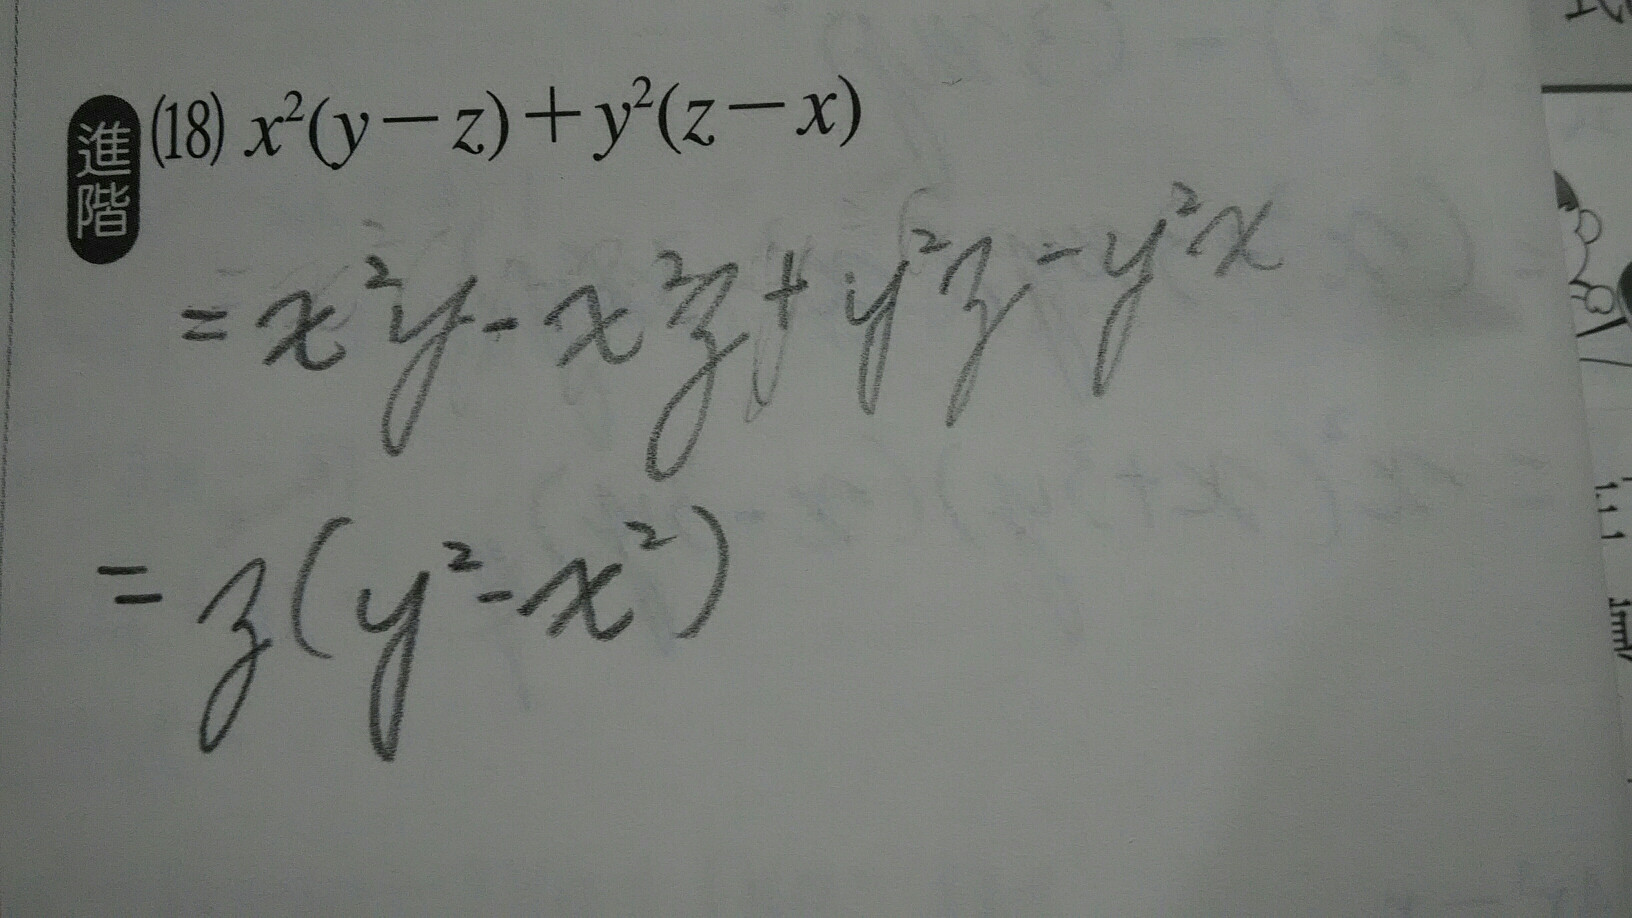 進階 (18) x²(y－z)＋y²(z－x)
= x²y - x²z + y²z - y²x
= z(y² - x²)